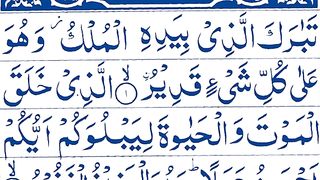 تَبٰرَكَ الَّذِىْ بِيَدِهِ الْمُلْكُ ز وَهُوَ
عَلٰى كُلِّ شَىْءٍ قَدِيْرُ ۨ ۙ‏﴿۱﴾ الَّذِىْ خَلَقَ
الْمَوْتَ وَالْحَيٰوةَ لِيَبْلُوَكُمْ اَيُّكُمْ